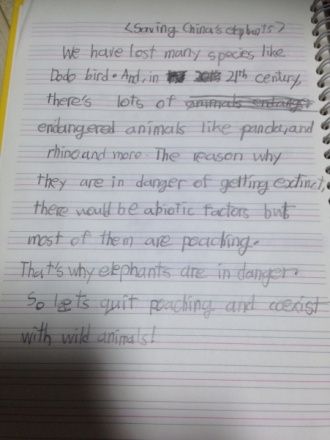 <Saving China's elephants>
We have lost many species like
Dodo bird. And, in 21th century,
there's lots of
endangered animals like panda, and
rhino and more. The reason why
they are in danger of getting extinct,
there would be abiotic factors but
most of them are poaching.
That's why elephants are in danger.
So let's quit poaching and coexist
with wild animals!